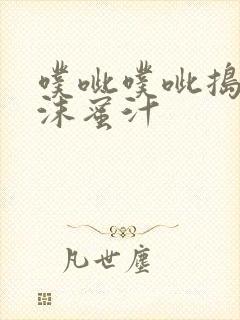 噗呲噗呲捣
沫蜜汁
凡世尘